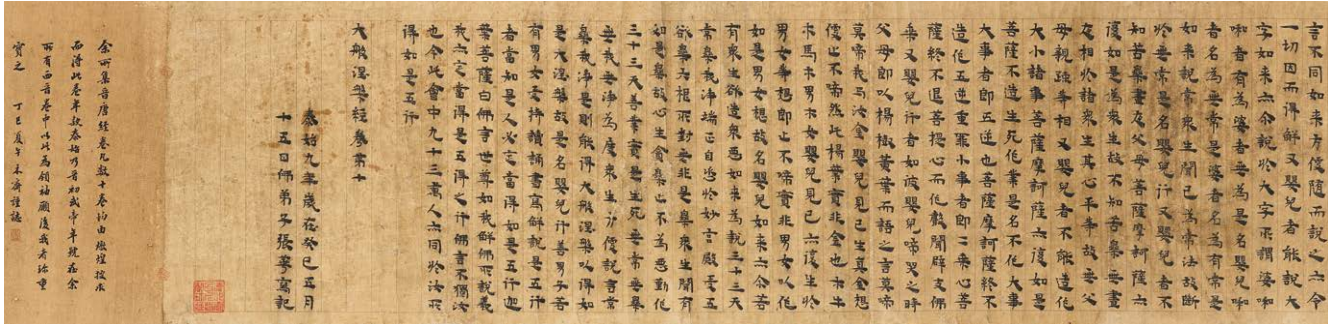 言不同如来方便随而說之亦令
一切因而得解又嬰兒者能說大
字如来亦尒說於大字所謂婆啝
啝者有為婆者无為是名嬰兒啝
者名為无常婆者名為有常是
如来說常眾生聞已為常法故断
於无常是名嬰兒行又嬰兒者不
知苦樂晝夜父母菩薩摩訶薩亦
復如是為眾生故不知苦樂无晝
夜相於諸眾生其心平等故无父
母親踈等相又嬰兒者不能造作
大小諸事菩薩摩訶薩亦復如是
菩薩不造生死作業是名不作大事
大事者即五逆也菩薩摩訶薩終不
造作五逆重罪小事者即二乘心菩
薩終不退菩提心而作聲聞辟支佛
乘又嬰兒行者如彼嬰兒啼哭之時
父母即以楊樹黃葉而語之言莫啼
莫啼我与汝金嬰兒見已生真金想
便止不啼然此楊葉實非金也木牛
木馬木男木女嬰兒見已亦復生於
男女等想即止不啼實非男女以作
如是男女想故名嬰兒如来亦尒若
有眾生欲造眾惡如来為說三十三天
常樂我淨端正自恣於妙宮殿受五
欲樂六根所對无非是樂眾生聞有
如是樂故心生貪樂止不為惡勤作
三十三天善業實是生死无常无樂
无我无淨為度眾生方便說言常
樂我淨是則能得大般涅槃以得如
是大涅槃故是名嬰兒行善男子若
有男女受持讀誦書寫解說是五行
者當知是人必定當得如是五行迦
葉菩薩白佛言世尊如我解佛所說義
我亦定當得是五行佛言不獨汝
也今此會中九十三萬人亦同於汝
得如是五行
大般涅槃經卷第十
泰始九年歲在癸巳五月
十五日佛弟子張華寫記
余所集晉唐經卷凡數十卷均由燉煌
而得此卷年款泰始乃晉初武帝年號在余
所有西晉卷中此為領袖願後我者珍重
寶之 丁巳夏午木齋謹誌